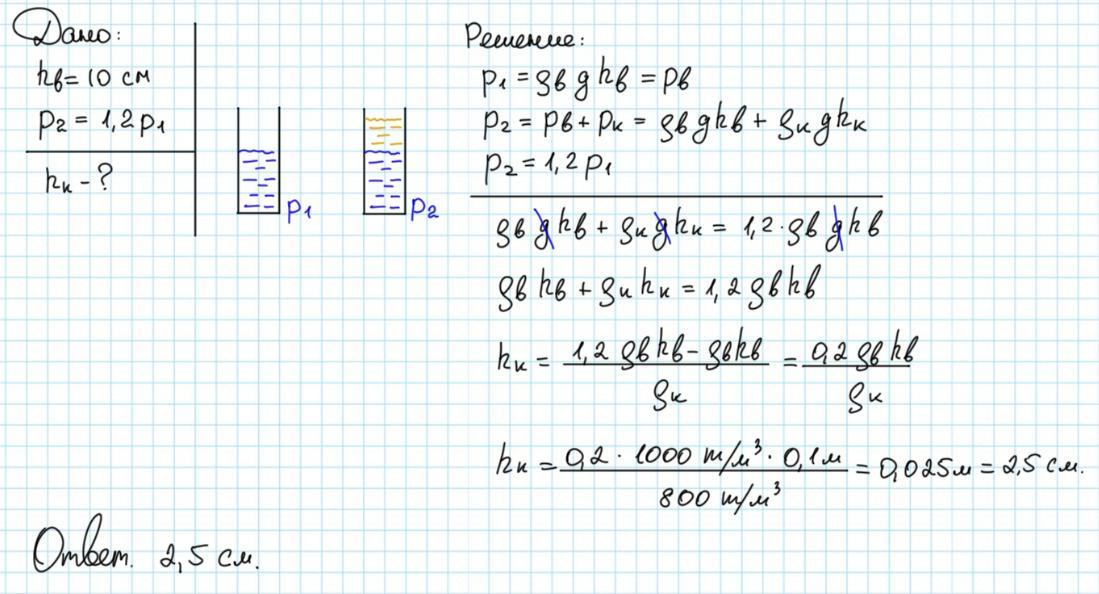 Дано:
hв = 10 см
p₂ = 1,2 p₁
hк - ?
p₁
p₂
Решение:
p₁ = ρв g hв = pв
p₂ = pв + pк = ρв g hв + ρк g hк
p₂ = 1,2 p₁
ρв g hв + ρк g hк = 1,2 · ρв g hв
ρв hв + ρк hк = 1,2 ρв hв
hк = (1,2 ρв hв - ρв hв) / ρк = 0,2 ρв hв / ρк
hк = 0,2 · 1000 т/м³ · 0,1 м / 800 т/м³ = 0,025 м = 2,5 см.
Ответ. 2,5 см.